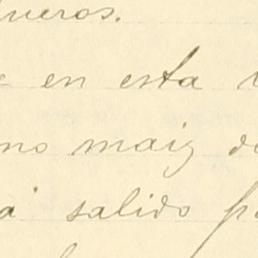 ueros.
e en esta
no maiz de
a salido p